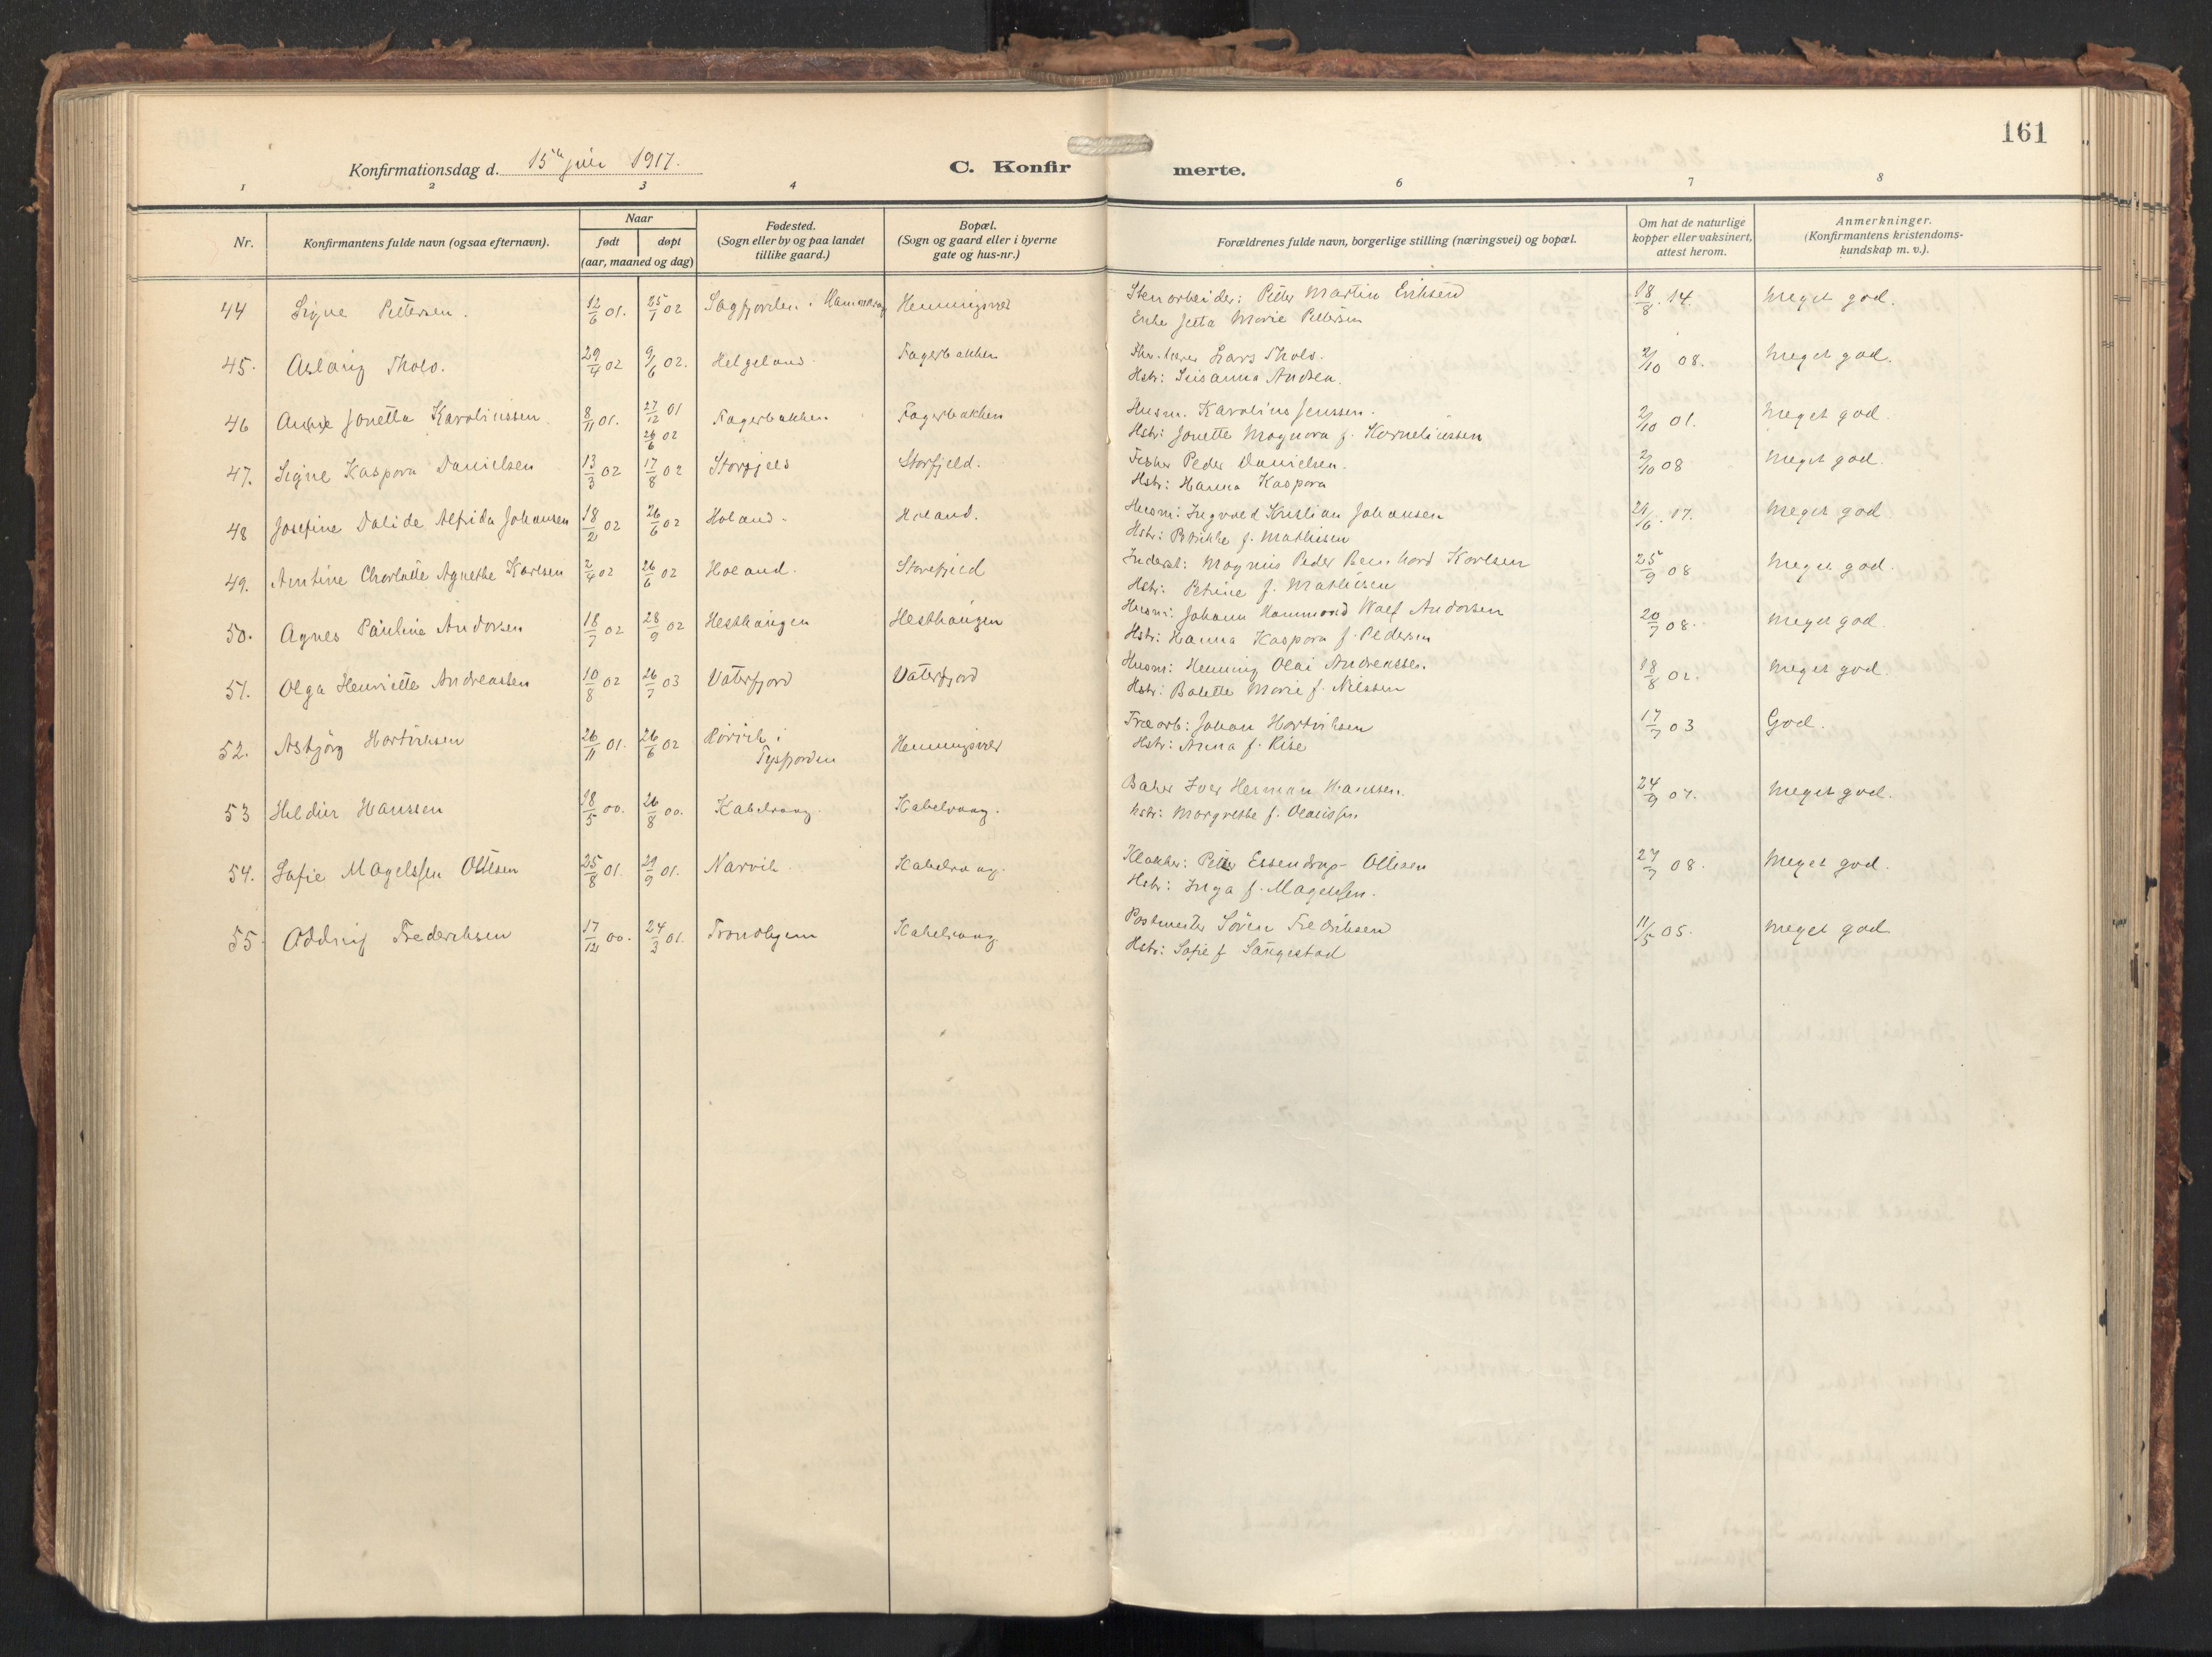 161
Konfirmationsdag d. 15de juli 1917.
C. Konfirmerte.
1 2 3 4 6 7 8
Nr.
Konfirmantens fulde navn (ogsaa efternavn).
Naar
født døpt
(aar, maaned og dag)
Fødested.
(Sogn eller by og paa landet
tillike gaard.)
Bopæl.
(Sogn og gaard eller i byerne
gate og hus-nr.)
Forældrenes fulde navn, borgerlige stilling (næringsvei) og bopæl.
Om hat de naturlige
kopper eller vaksinert,
attest herom.
Anmerkninger.
(Konfirmantens kristendoms-
kundskap m. v.).
44 Signe Pettersen. 12/6 01. 25/1 02 Sagfjorden i Hammerøy Henningsvær Stenarbeider: Peter Martin Eriksen 18/8.14. Meget god.
Enke Jetta Marie Pettersen
45. Aslaug Tholo. 29/4 02 9/6 02. Helgeland Fagerbakken Lars Tholo. 2/10 08. Meget god.
Hstr: Susanna Andsen.
46 Anne Jonetta Karoliussen 8/11 01. 27/12 01 Fagerbakken Fagerbakken Husm. Karolius Jenssen. 2/10 01. Meget god.
26/6 02
Hstr: Jonette Magnora f. Korneliussen
47. Signe Kaspora Danielsen 13/3 02 17/8 02 Storfjeld Storfjeld. Fisker Peder Danielsen. 2/10 08 Meget god.
Hstr: Hanna Kaspora
48 Josefine Dalide Alfrida Johansen 18/2 02 26/6 02 Holand. Holand. Husm: Ingvald Kristian Johansen 21/6.17. Meget god
Hstr: Brikke f. Mathisen
49. Amtine Charlotte Agnethe Karlsen 2/4 02 26/6 02 Holand. Storefjeld Inderst: Magnus Peder Bernhard Karlsen 25/9 08 Meget god.
Hstr: Petrine f. Mathisen
50. Agnes Pauline Andorsen 18/7 02 28/9 02 Hesthaugen Hesthaugen Husm: Johann Hammond Walf Andorsen 20/7 08. Meget god.
Hstr: Hanna Kaspora f. Pedersen
51. Olga Henriette Andreassen 10/8 02 26/7 03 Vaterfjord Vaterfjord Husm: Henning Olai Andreassen. 18/8 02. Meget god.
Hstr: Balette Marie f. Nilssen
52. Asbjørg Hartviksen 26/11 01. 26/6 02 Rørvik i Henningsvær Træarb: Johan Hartviksen 17/7 03 God.
Tysfjorden
Hstr: Anna f. Rise
53 Hildur Hanssen 18/5 00. 26/8 00. Kabelvaag. Kabelvaag. Baker Iver Herman Hanssen. 24/9 07. Meget god.
Hstr: Margrethe f. Olaussen
54. Sofie Magelssen Ottesen 25/8 01. 29/9 01. Narvik Kabelvaag. Klokker: Peter Essendrop Ottesen 27/7 08. Meget god.
Hstr: Inga f. Magelssen.
55 Oddny Frederiksen 17/12 00. 24/3 01. Trondhjem Kabelvaag Postmester Søren Fredriksen 11/5 05. Meget god
Hstr: Sofie f Saugestad